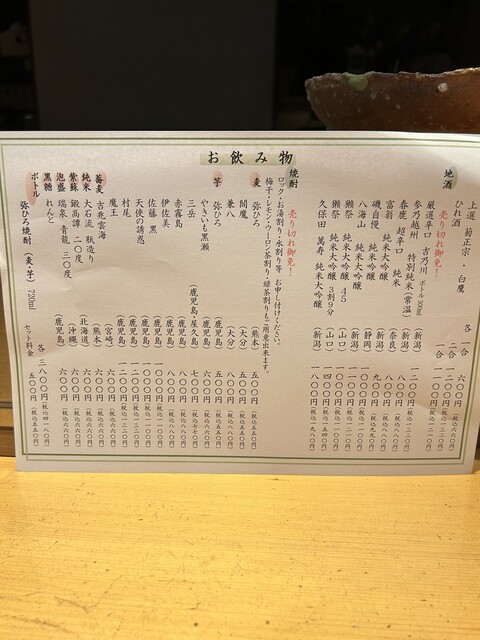 お飲み物
上選 菊正宗・白鷹
各 一合 六〇〇円(税込六六〇円)
二合
ひれ酒 一合
地酒
売り切れ御免!
厳選辛口 吉乃川 ボトル300ml (新潟)
参乃越州 特別純米(常温) (新潟)
春鹿 超辛口 純米 (奈良)
富翁 純米大吟醸
磯自慢 純米吟醸 (静岡)
八海山 純米大吟醸 (新潟)
獺祭 純米大吟醸 45 (山口)
獺祭 純米大吟醸 3割9分 (山口)
久保田 萬寿 純米大吟醸 (新潟) 一八〇〇円(税込一九八〇円)
焼酎
売り切れ御免!
ロック・お湯割り・水割り等 お申し付けください。
梅干・レモン・ウーロン茶割り・緑茶割りもご用意出来ます。
麦 弥ひろ (熊本) 五〇〇円(税込五五〇円)
閻魔 (大分) 五〇〇円(税込五五〇円)
兼八 (大分) 八〇〇円(税込八八〇円)
芋 弥ひろ (鹿児島) 五〇〇円(税込五五〇円)
やきいも黒瀬 (鹿児島) 六〇〇円(税込六六〇円)
三岳 (鹿児島・屋久島) 七〇〇円(税込七七〇円)
赤霧島 八〇〇円(税込八八〇円)
伊佐美 (鹿児島) 八〇〇円(税込八八〇円)
佐藤 黒 (鹿児島)
天使の誘惑 (鹿児島)
村尾 (鹿児島)
魔王 (鹿児島)
蕎麦 吉兆雲海 (宮崎) 六〇〇円(税込六六〇円)
純米 大石流 瓶造り (熊本) 六〇〇円(税込六六〇円)
紫蘇 鍛高譚 二〇度 (北海道) 六〇〇円(税込六六〇円)
泡盛 瑞泉 青龍 三〇度 (沖縄) 六〇〇円(税込六六〇円)
黒糖 れんと (鹿児島) 六〇〇円(税込六六〇円)
ボトル 弥ひろ焼酎(麦・芋) 720ml 各 三八〇〇円(税込四一八〇円)
セット料金 五〇〇円(税込五五〇円)